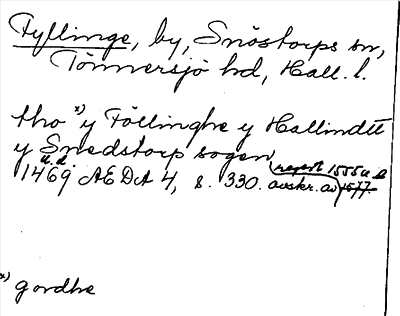 Fyllinge, by, Snöstorps sn,
Tönnersjö hd, Hall. l.
tho x) y Föllinghe y Hallindtt
y Snedstorp sogen
u.d.
1469 AEDA 4, s. 330. (regest 1555 u.d.
avskr. av 1577.
x) gordhe